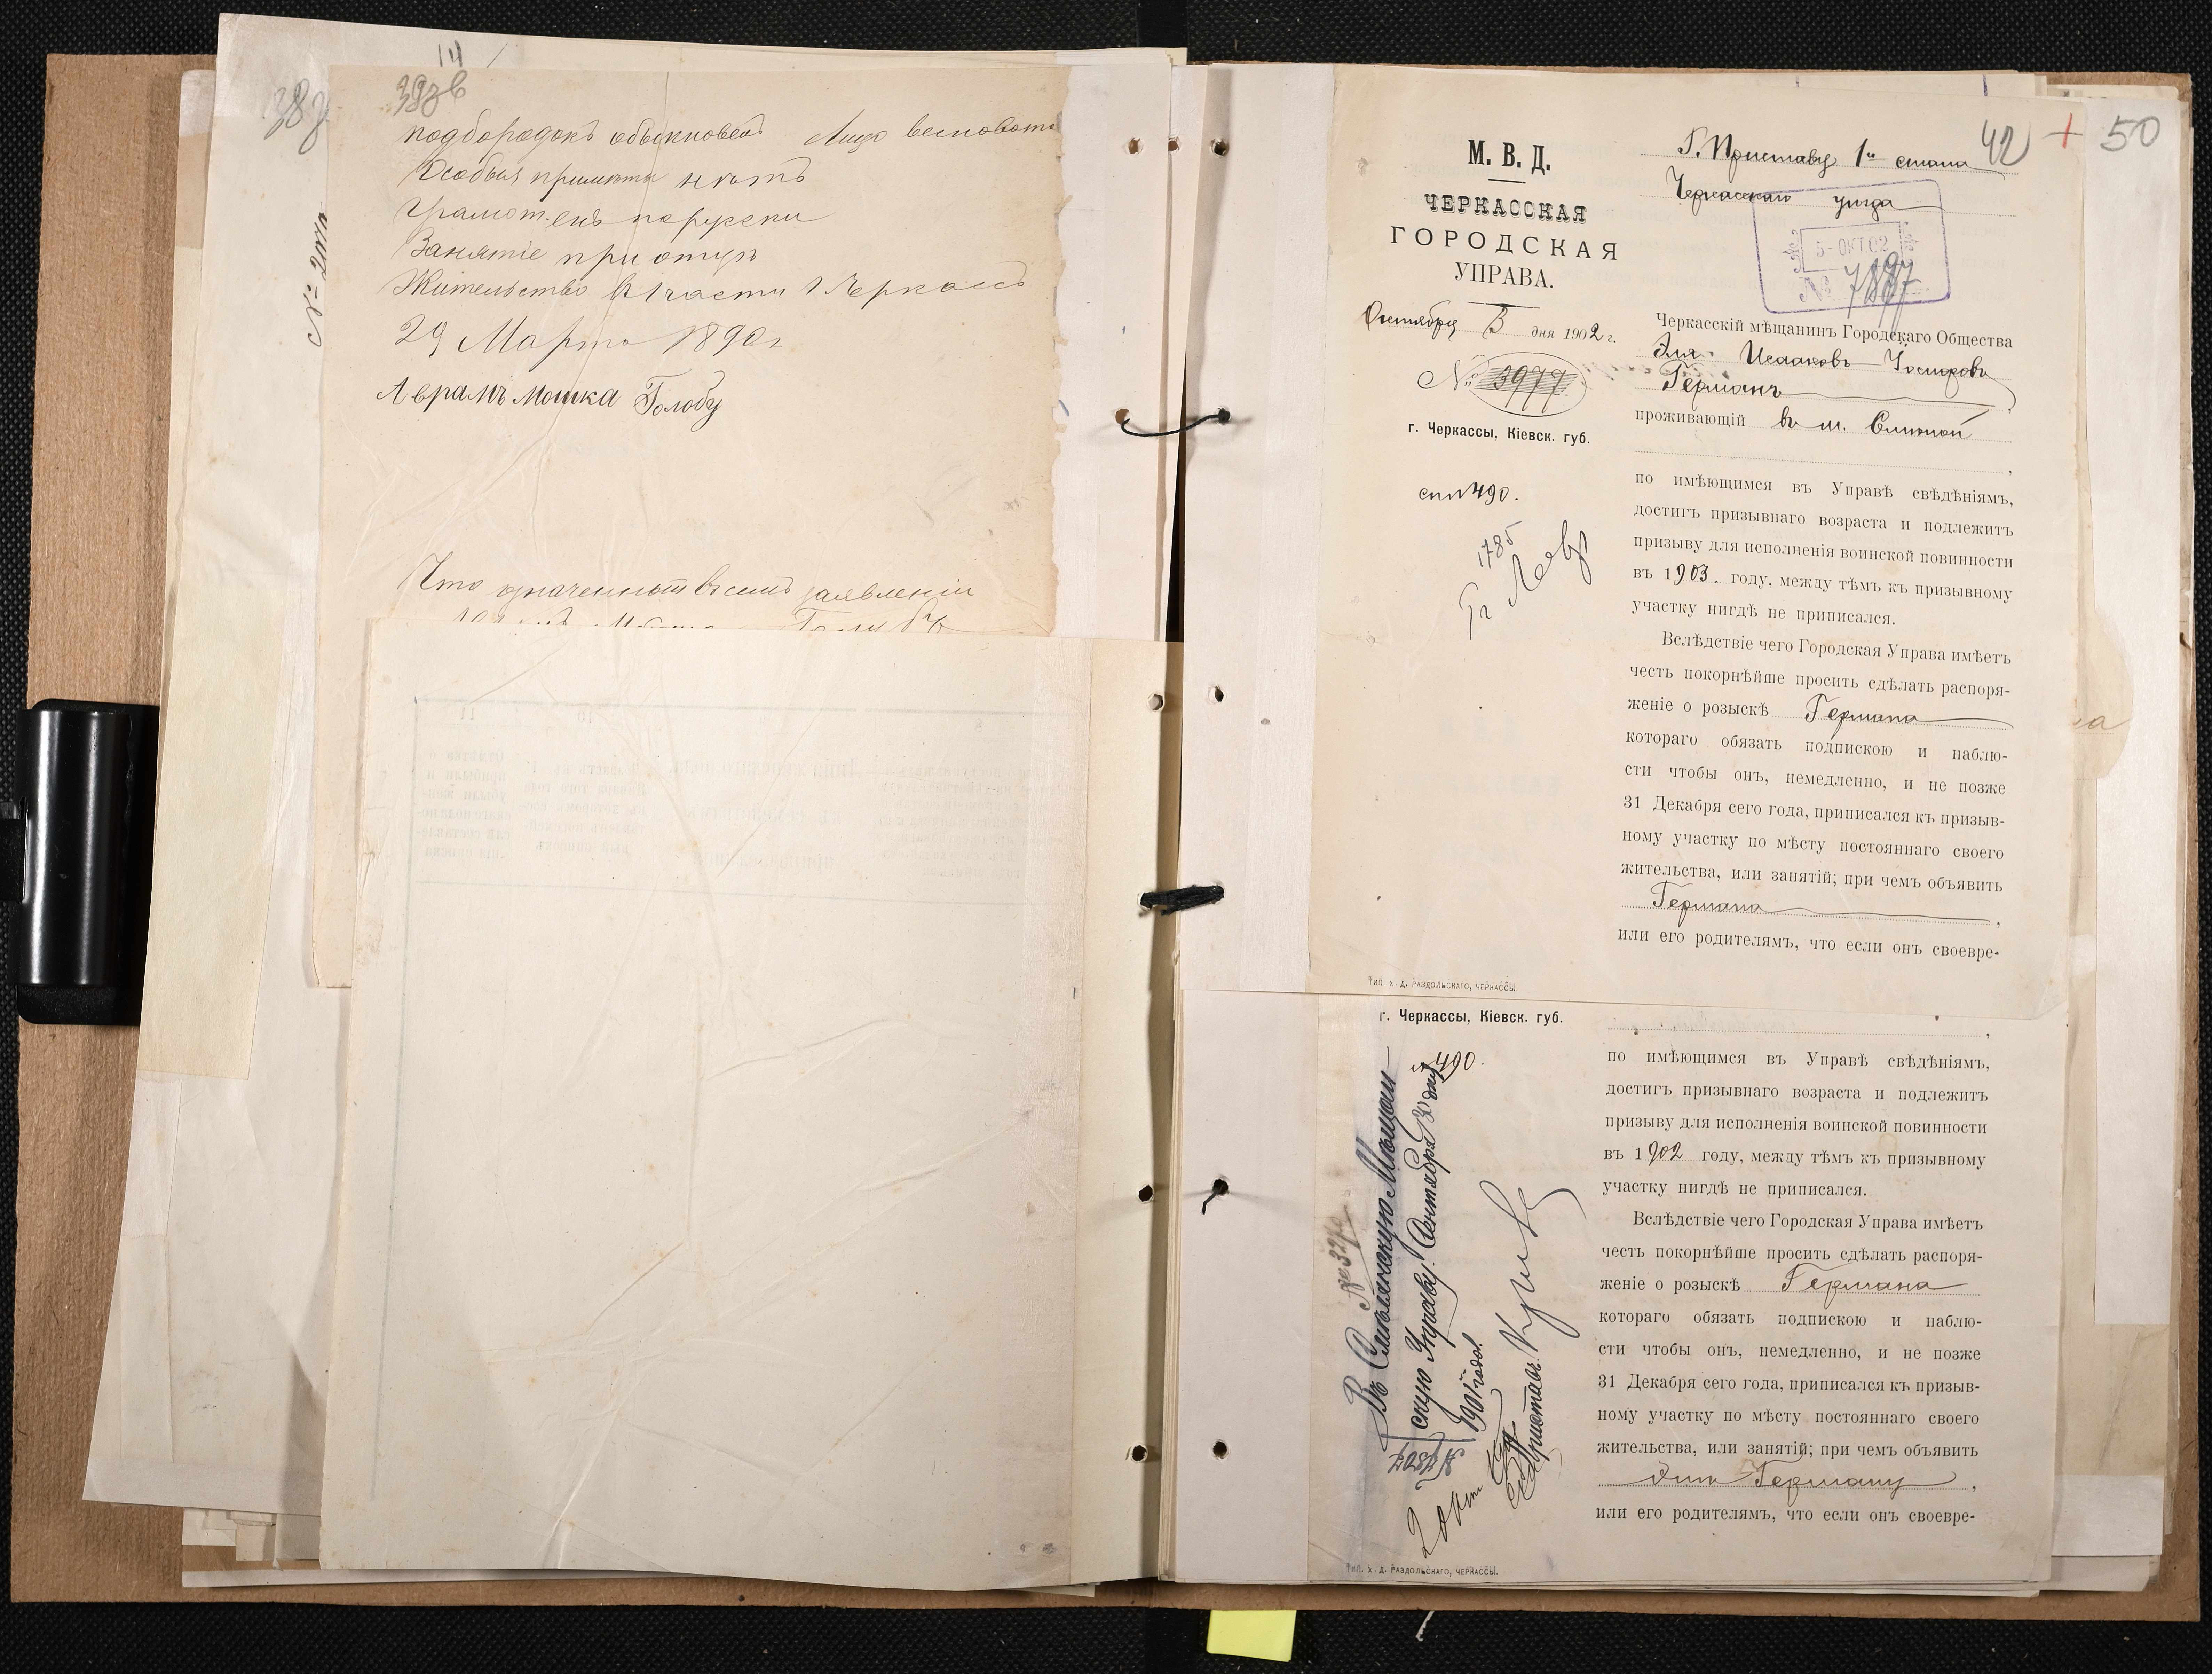 111
38з
39зв
подбородокъ обыкновен. Лицо весноват
Особыя приметы нѣтъ
Грамотенъ по русски
Занятіе при отцѣ
Жительство в 1 части г Черкассъ
29 Марта 1890 г
Аврамъ Мошка Голобу
Что означенный въ семъ заявленіи
Голубъ
42 + 50
М. В. Д.
ЧЕРКАССКАЯ
ГОРОДСКАЯ
УПРАВА.
Октября 3 дня 1902 г.
№ 3977
г. Черкассы, Кіевск. губ.
490.
1785
Г. Приставу 1го стана
Черкасскаго уезда
5-ОКТ.02
№
Черкасскій мѣщанинъ Городскаго Общества
Эля Исааковъ
Германъ
проживающій въ м. Смѣлой
по имѣющимся въ Управѣ свѣдѣніямъ,
достигъ призывнаго возраста и подлежитъ
призыву для исполненія воинской повинности
въ 1903. году, между тѣмъ къ призывному
участку нигдѣ не приписался.
Вслѣдствіе чего Городская Управа имѣетъ
честь покорнѣйше просить сдѣлать распоря-
женіе о розыскѣ Германа
котораго обязать подпискою и наблю-
сти чтобы онъ, немедленно, и не позже
31 Декабря сего года, приписался къ призыв-
ному участку по мѣсту постояннаго своего
жительства, или занятій; при чемъ объявить
Германа,
или его родителямъ, что если онъ своевре-
ТИП. Х. Д. РАЗДОЛЬСКАГО, ЧЕРКАССЫ.
г. Черкассы, Кіевск. губ.
490.
№ 32
Въ Смѣлянскую Мѣщан-
скую Управу. Сентября 30 дня
1901 года.
Приставъ
по имѣющимся въ Управѣ свѣдѣніямъ,
достигъ призывнаго возраста и подлежитъ
призыву для исполненія воинской повинности
въ 1902 году, между тѣмъ къ призывному
участку нигдѣ не приписался.
Вслѣдствіе чего Городская Управа имѣетъ
честь покорнѣйше просить сдѣлать распоря-
женіе о розыскѣ Германа
котораго обязать подпискою и наблю-
сти чтобы онъ, немедленно, и не позже
31 Декабря сего года, приписался къ призыв-
ному участку по мѣсту постояннаго своего
жительства, или занятій; при чемъ объявить
Эли Герману,
или его родителямъ, что если онъ своевре-
ТИП. Х. Д. РАЗДОЛЬСКАГО, ЧЕРКАССЫ.